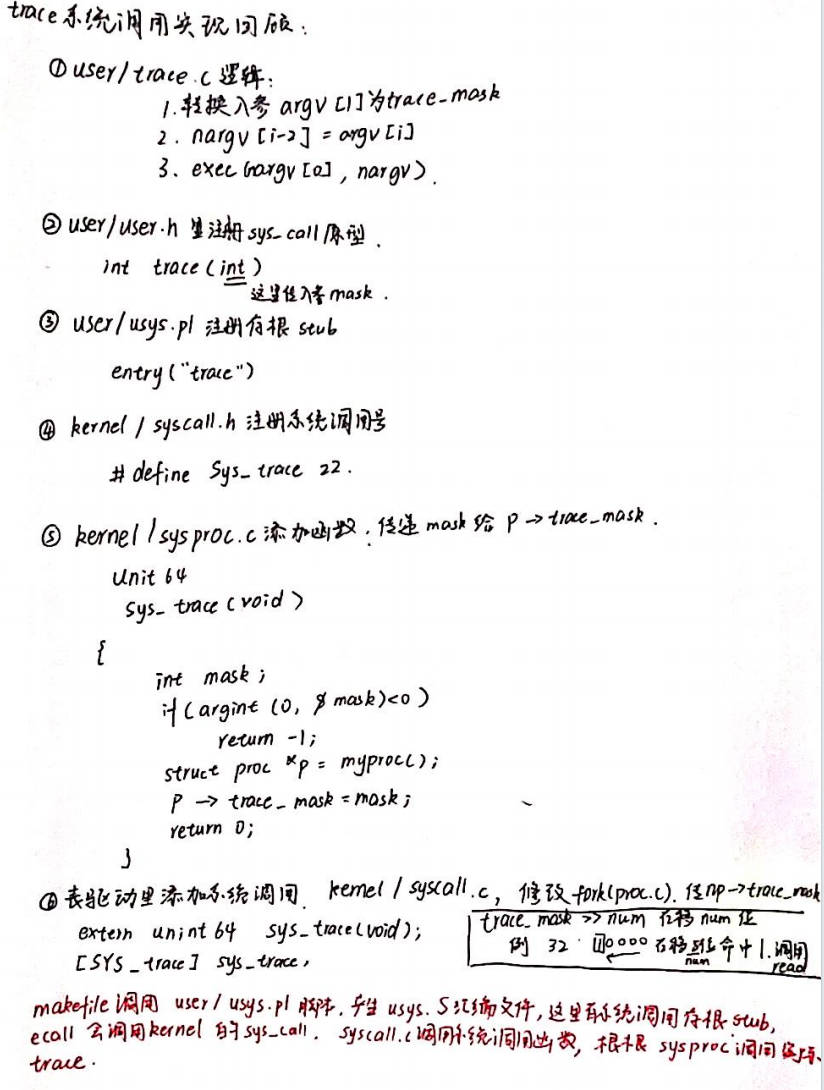 trace系统调用实现回顾:
① user/trace.c 逻辑:
1.转换入参 argv [1]为trace-mask
2. nargv [i-2] = argv[i]
3、exec (nargv [0], nargv).
② user/user.h 里注册 sys_call 原型.
int trace (int)
这里传入参 mask.
③ user/usys.pl 注册存根 stub
entry("trace")
④ kernel / syscall.h 注册系统调用号
# define Sys_trace 22.
⑤ kernel / sysproc.c 添加函数,传递 mask 给 P→trace_mask.
Unit 64
sys_trace (void)
{
int mask;
if (argint (0, & mask)<0)
return -1;
struct proc *p = myproc();
P → trace_mask = mask;
return 0;
}
⑥ 表驱动里添加系统调用. kernel / syscall.c, 修改 fork(proc.c). 传np→trace_mask
extern unint 64 sys_trace(void);
[SYS_trace] sys_trace,
trace_mask >> num 右移 num 位
例 32 0000 右移 命中1.调用
num read
makefile 调用 user/usys.pl 脚本,产生 usys.S汇编文件,这里有系统调用存根 stub,
ecall 会调用kernel 的sys_call. syscall.c调用系统调用函数, 根据 sysproc调用
trace.